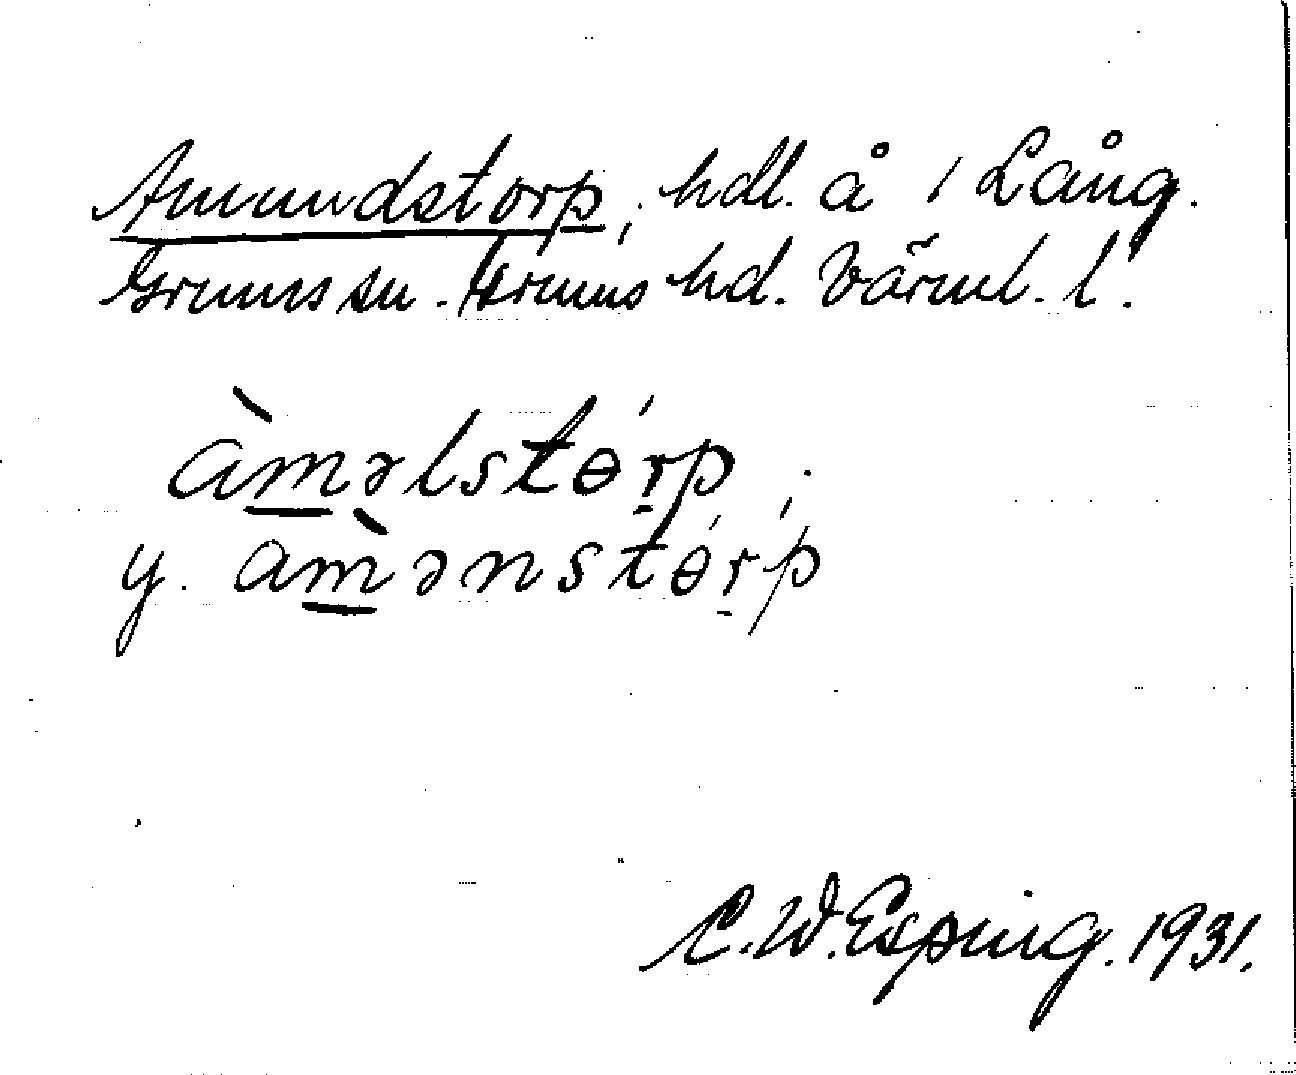 Amundstorp, hdl. å i Lång.
Grums sn. Grums hd. Värml. l.
àməlstɵ́rp,
y. am̀ənstɵ́rp
C. W. Esping. 1931.